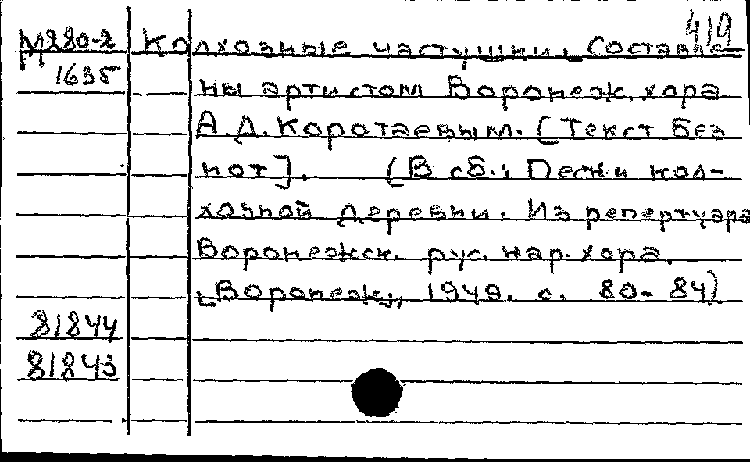 419
М220-2 Колхозные частушки. Составле-
1635
ны артистом Воронеж. хора
А.Д. Коротаевым. [Текст без
нот]. (В сб.: Песни кол-
хозной деревни. Из репертуара
Воронежск. рус. нар. хора.
[Воронеж], 1949. с. 80-84)
81844
81843